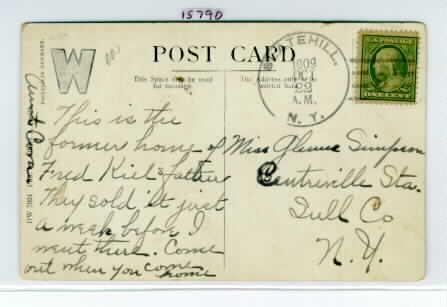 15790
W
POST CARD
This Space may be used
for message.
The Address only to be
written here.
WHITEHILL,
1909
OCT
22
A.M.
N. Y.
ONE CENT
This is the
former home of
Fred Kiel's father
They sold it just
a week before I
went there. Come
out when you come
home
Aunt Cora
Miss Glenna Simpson
Centreville Sta.
Sull Co
N.Y.